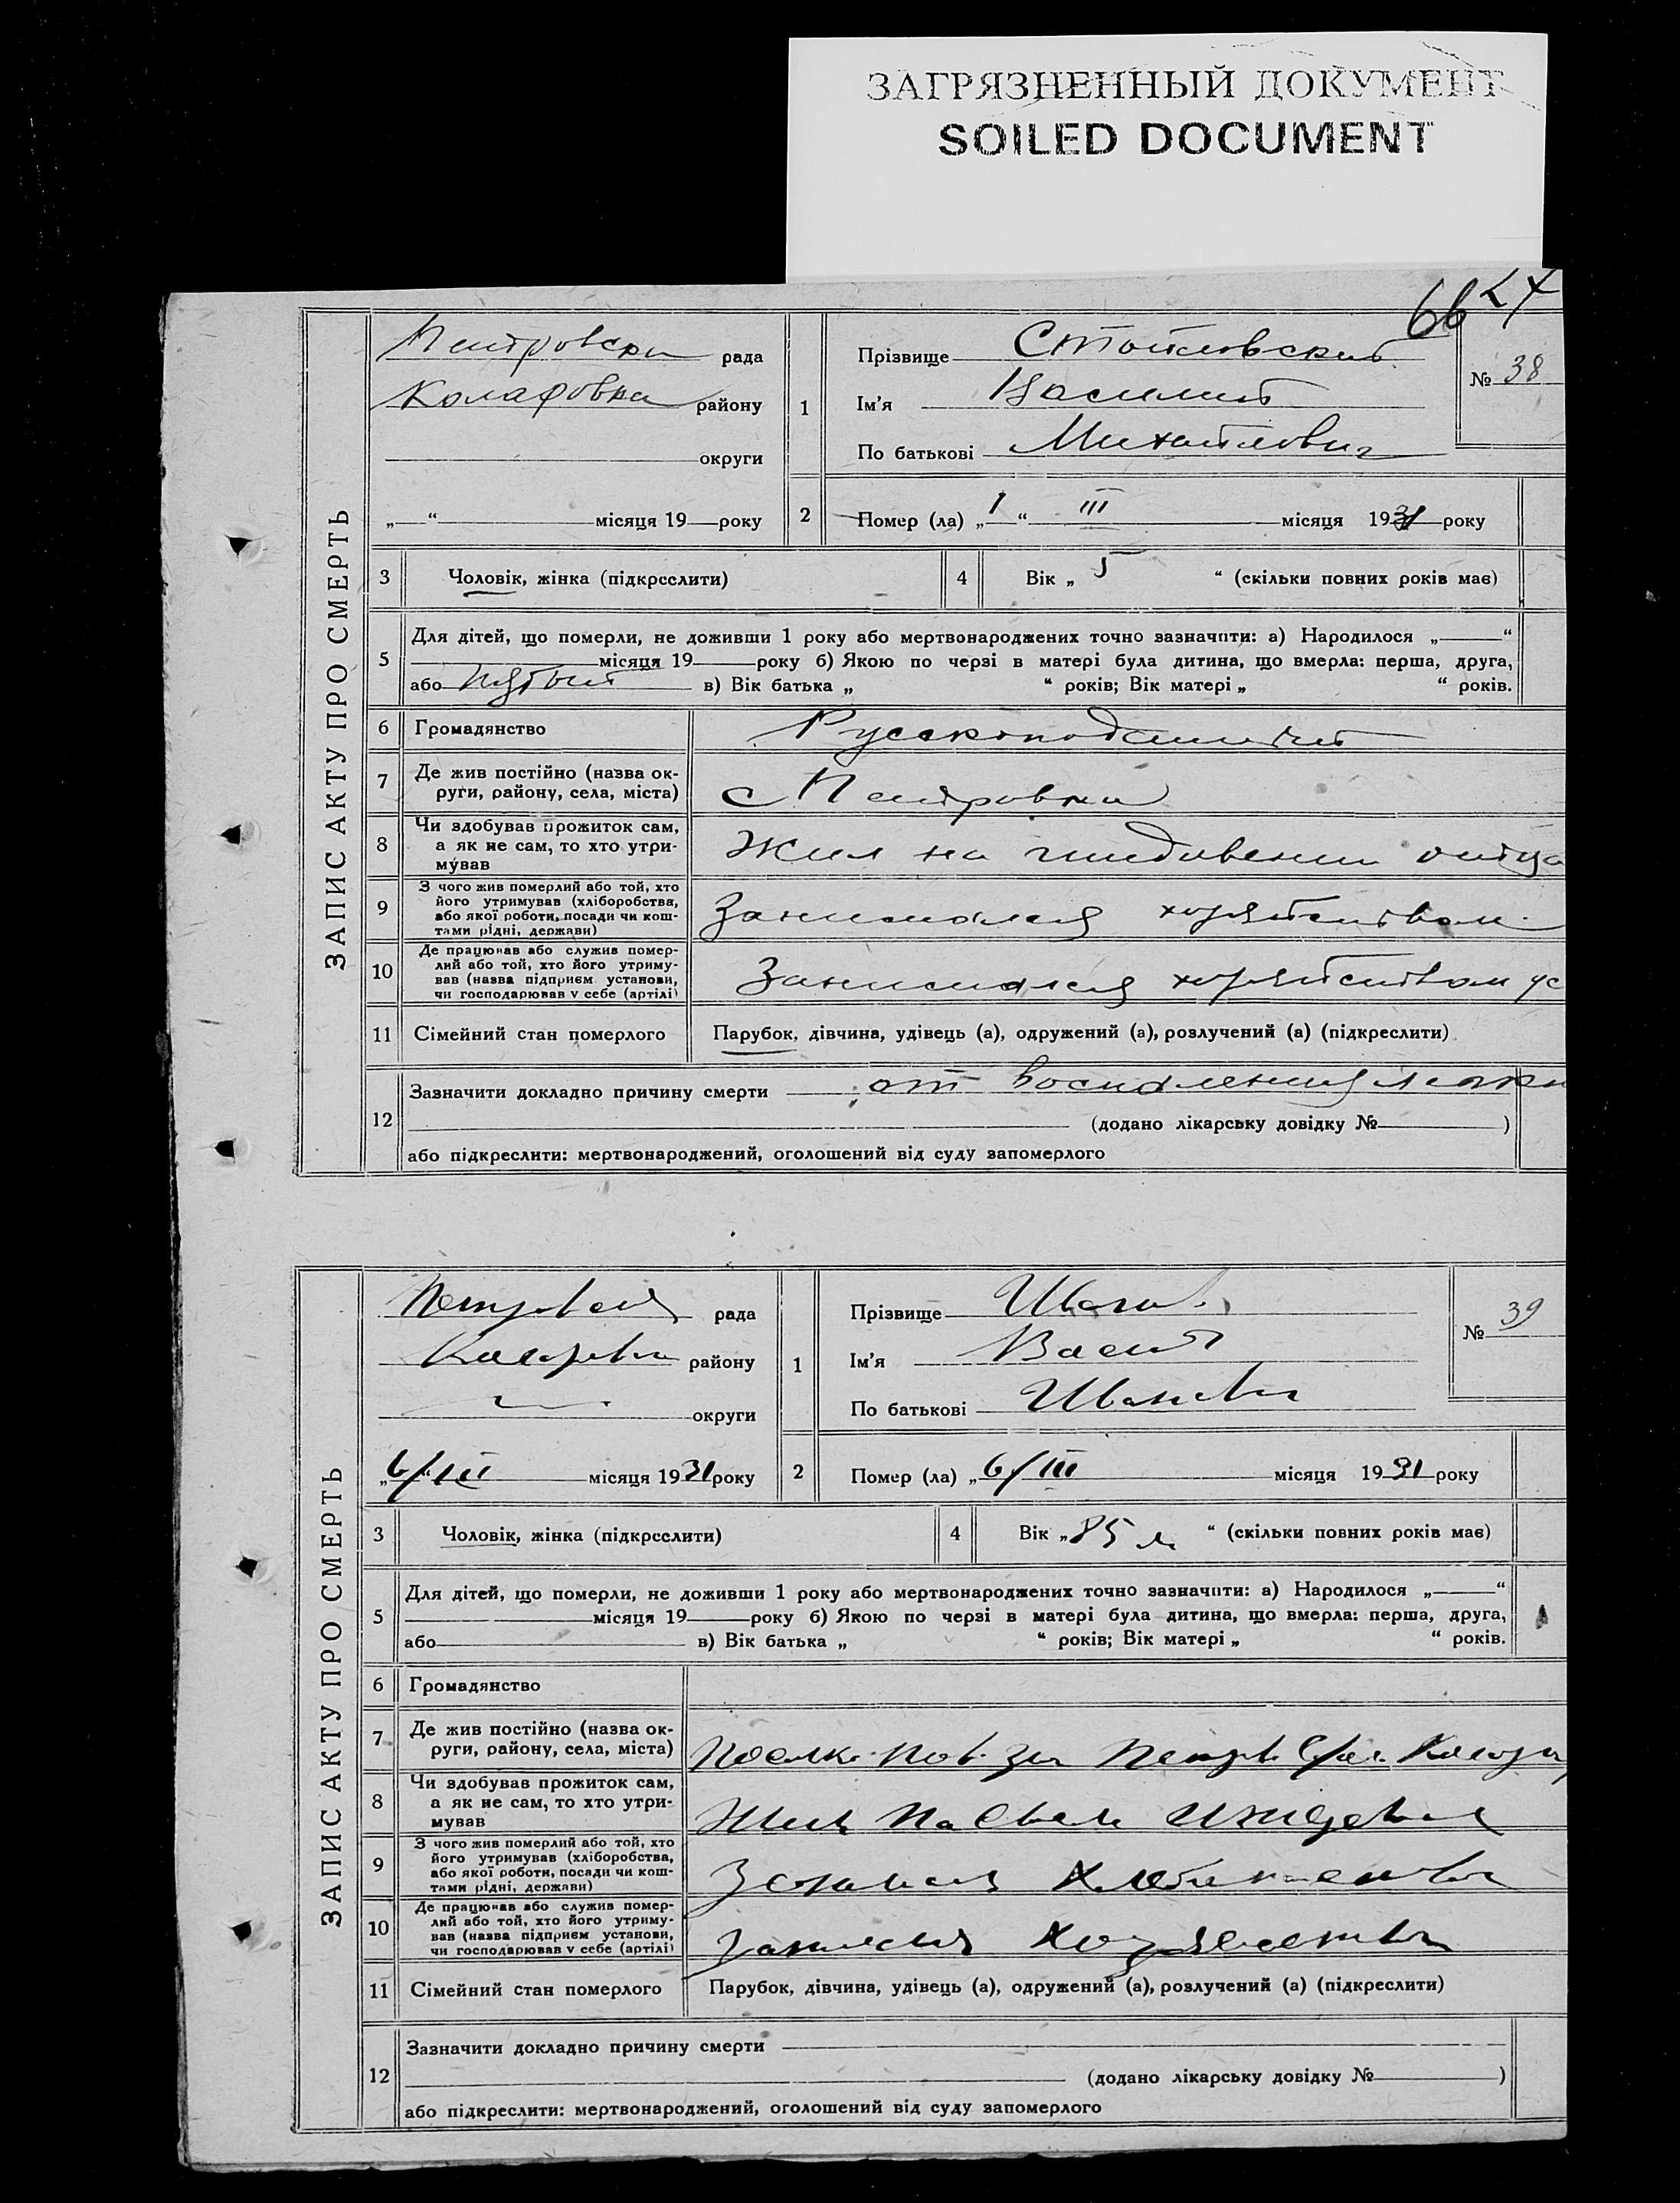 ЗАГРЯЗНЕННЫЙ ДОКУМЕНТ
SOILED DOCUMENT
66
ЗАПИС АКТУ ПРО СМЕРТЬ
рада
району
округи
„ “ місяця 19 року
1
Прізвище
Ім'я Василий
По батькові Михайлович
№ 38
2
Помер (ла) „1“ III місяця 1931 року
3 Чоловік, жінка (підкреслити)
4 Вік „5“ (скільки повних років має)
5
Для дітей, що померли, не доживши 1 року або мертвонароджених точно зазначити: а) Народилося „ “
місяця 19 року б) Якою по черзі в матері була дитина, що вмерла: перша, друга,
або пятый в) Вік батька „ “ років; Вік матері „ “ років.
6 Громадянство
7 Де жив постійно (назва ок-
руги, району, села, міста)
с Петровка
8 Чи здобував прожиток сам,
а як не сам, то хто утри-
мував
Жил на иждивении отца
9 З чого жив померлий або той, хто
його утримував (хліборобства,
або якої роботи, посади чи кош-
тами рідні, держави)
Занимался хозяйством
10 Де працював або служив помер-
лий або той, хто його утриму-
вав (назва підприєм установи,
чи господарював у себе (артілі)
Занимался хозяйством ус
11 Сімейний стан померлого
Парубок, дівчина, удівець (а), одружений (а), розлучений (а) (підкреслити)
12
Зазначити докладно причину смерти от воспаления легки
(додано лікарську довідку № )
або підкреслити: мертвонароджений, оголошений від суду запомерлого
ЗАПИС АКТУ ПРО СМЕРТЬ
рада
району
округи
„6/III місяця 1931 року
1
Прізвище
Ім'я
По батькові Иванович
№ 39
2
Помер (ла) „6/III місяця 1931 року
3 Чоловік, жінка (підкреслити)
4 Вік „85 л “ (скільки повних років має)
5
Для дітей, що померли, не доживши 1 року або мертвонароджених точно зазначити: а) Народилося „ “
місяця 19 року б) Якою по черзі в матері була дитина, що вмерла: перша, друга,
або в) Вік батька „ “ років; Вік матері „ “ років.
6 Громадянство
7 Де жив постійно (назва ок-
руги, району, села, міста)
8 Чи здобував прожиток сам,
а як не сам, то хто утри-
мував
9 З чого жив померлий або той, хто
його утримував (хліборобства,
або якої роботи, посади чи кош-
тами рідні, держави)
10 Де працював або служив помер-
лий або той, хто його утриму-
вав (назва підприєм установи,
чи господарював у себе (артілі)
11 Сімейний стан померлого
Парубок, дівчина, удівець (а), одружений (а), розлучений (а) (підкреслити)
12
Зазначити докладно причину смерти
(додано лікарську довідку № )
або підкреслити: мертвонароджений, оголошений від суду запомерлого